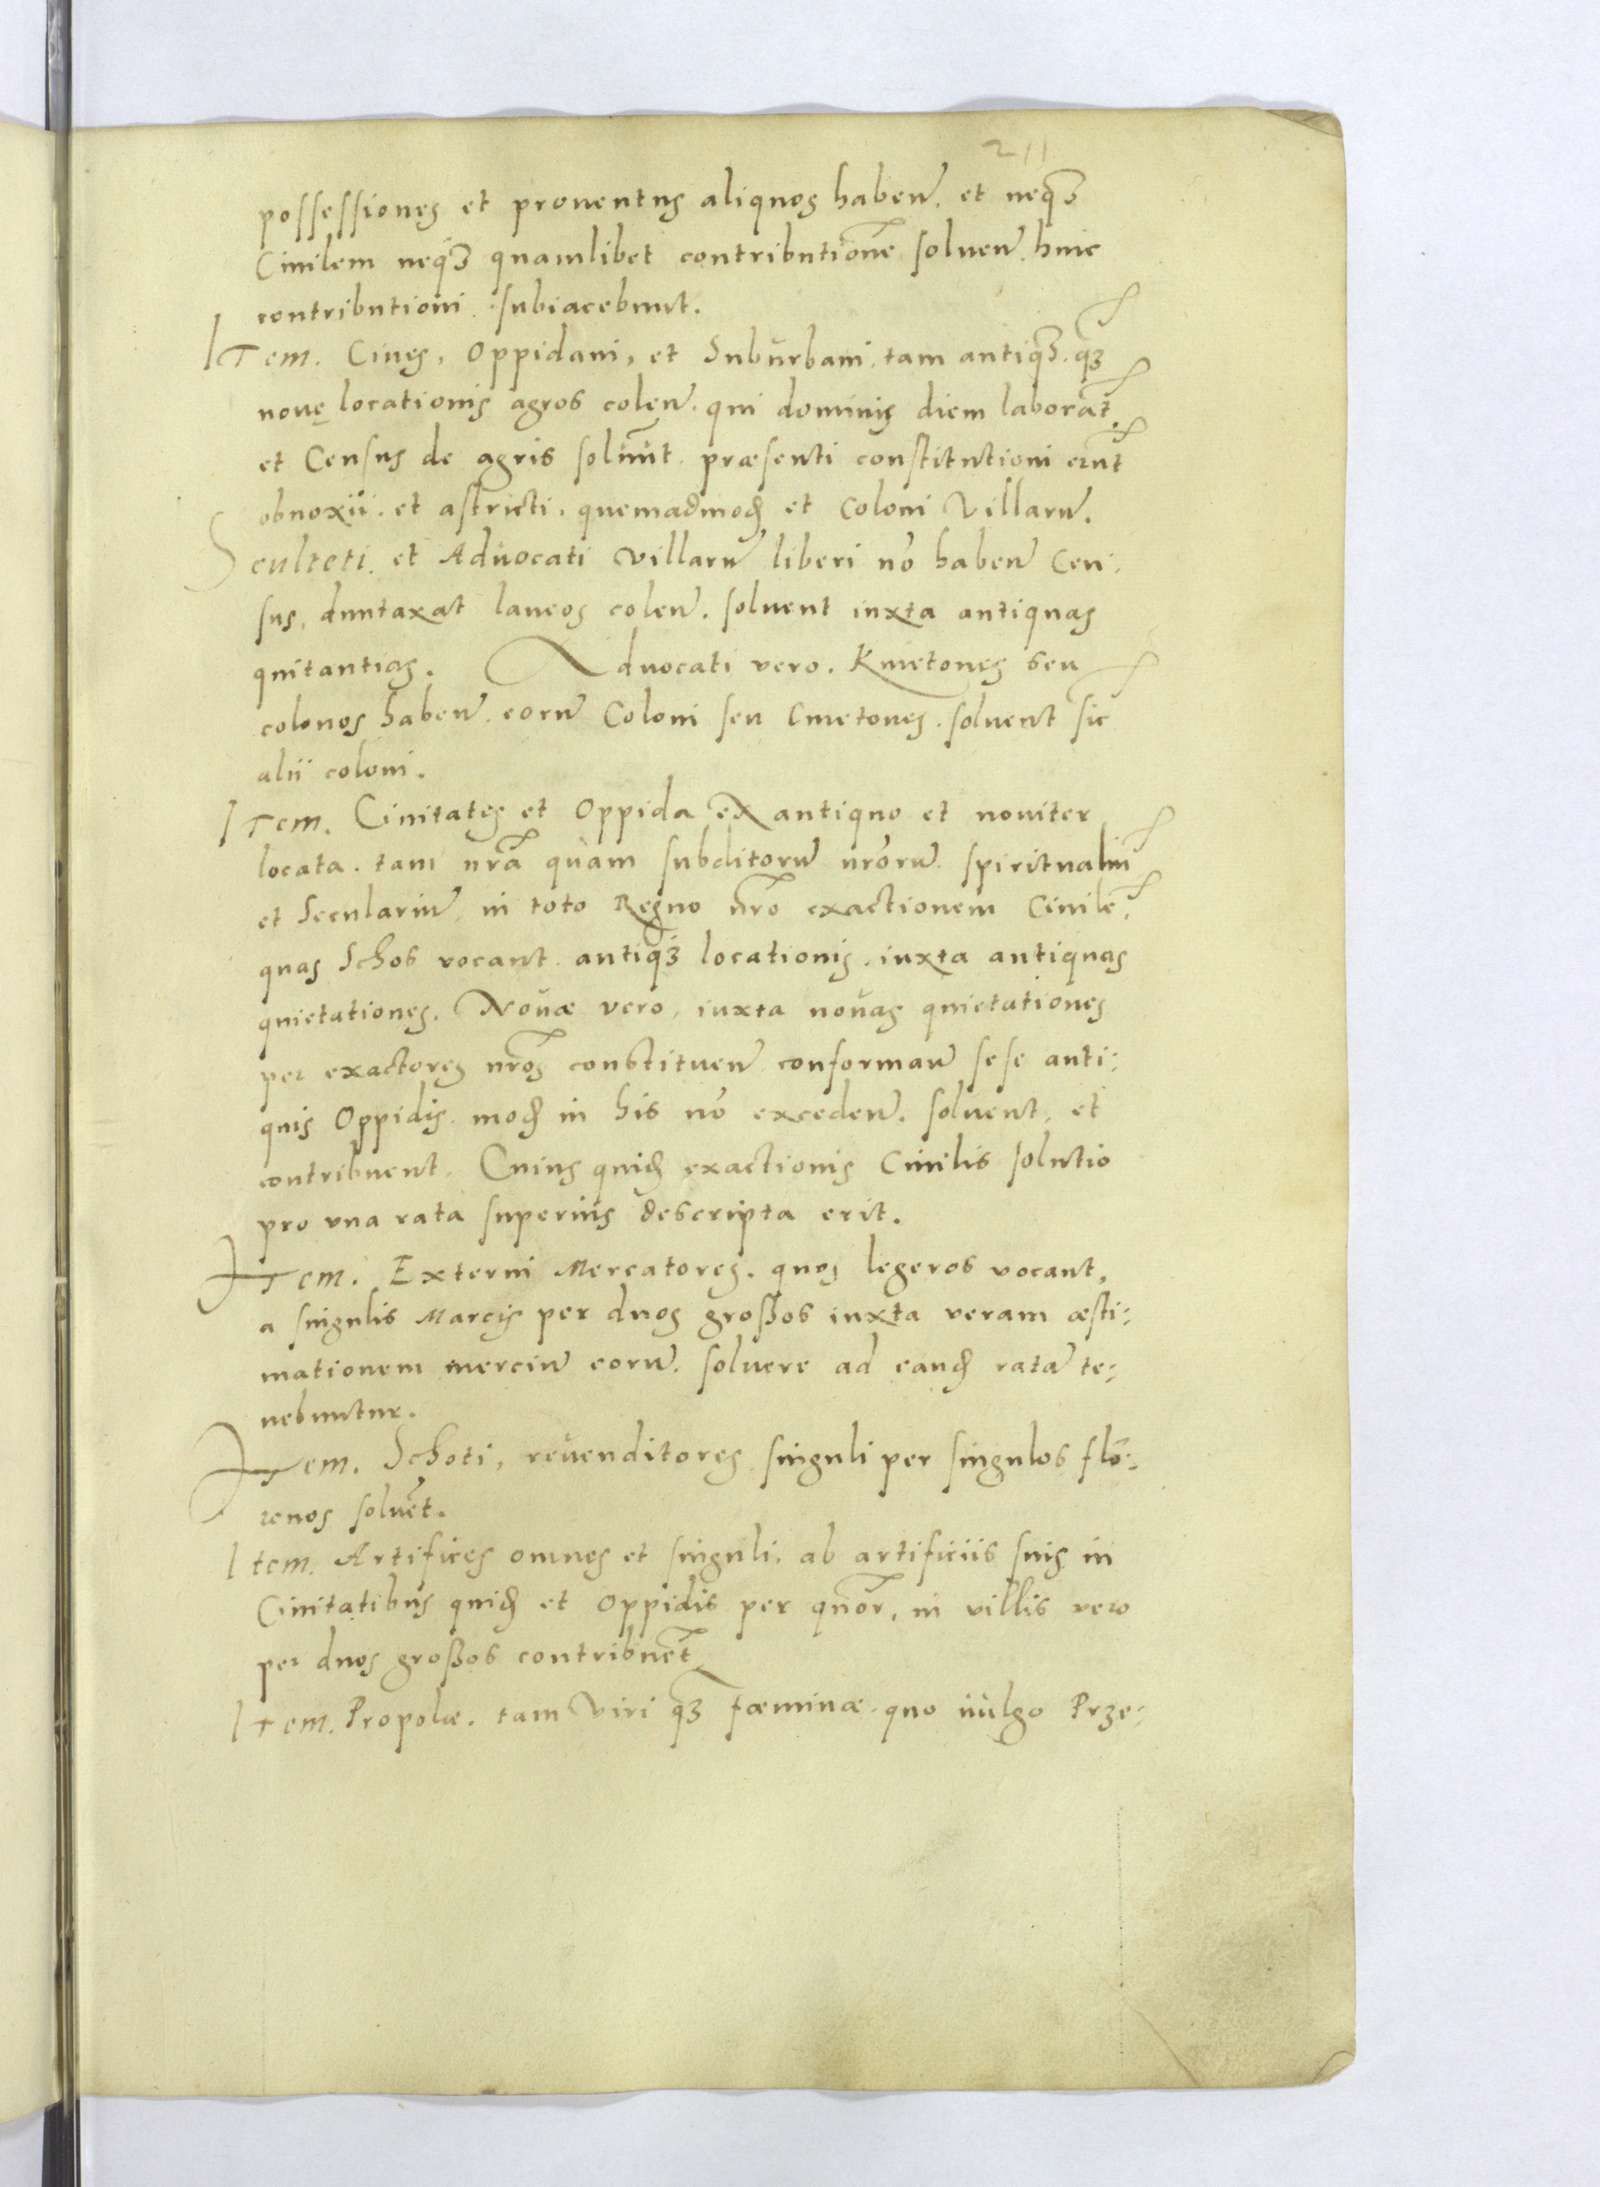 211
possessiones et prouentus aliquos haben̄. et neq3
Ciuilem neq3 quamlibet contributionē soluen̄. huic
contributioni subiacebunt.
ITem. Ciues, Oppidani, et Suburbani, tam antiq3. q3
nouę locationis agros colen̄. qui dominis diem laborāt,
et Census de agris soluunt. præsenti constitutioni erūt
obnoxii. et astricti. quemadmoꝺ et Coloni Villarū.
Sculteti. et Aduocati villarū liberi nō haben̄ Cen:
sus, duntaxat laneos colen̄. soluent iuxta antiquas
quitantias. Aduocati vero. Kmetones seu
colonos haben̄. eorū Coloni seu Cmetones. soluent sic
alii coloni.
ITem. Ciuitates et Oppida ex antiquo et nouiter
locata. tam nr̄a quam subditorū nr̄orū spiritualiū
et Seculariū, in toto Regno nr̄o exactionem Ciuilē,
quas Schos vocant. antiq3 locationis. iuxta antiquas
quietationes. Nouæ vero, iuxta nouas quietationes
per exactores nr̄os constituen̄ conforman̄ sese anti:
quis Oppidis. moꝺ in his nō exceden̄. soluent, et
contribuent. Cuius quiꝺ exactionis Ciuilis solutio
pro vna rata superius descripta erit.
ITem. Externi Mercatores. quos legeros vocant,
a singulis Marcis per duos großos iuxta veram æsti:
mationem merciū eorū. soluere ad eanꝺ ratā te:
nebuntur.
ITem. Schoti, reuenditores singuli per singulos flo:
renos soluēt.
Item. Artifices omnes et singuli. ab artificiis suis in
Ciuitatibus quiꝺ et Oppidis per quor̄, in villis vero
per duos großos contribuēt
ITem. Propolæ. tam Viri q3 fæminæ. quo uulgo Prze: